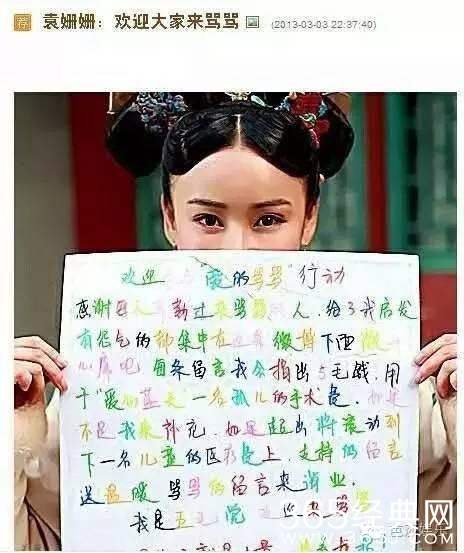 荐 袁姗姗：欢迎大家来骂骂 (2013-03-03 22:37:40)
欢迎 爱的骂骂"行动
感谢 天 勤过来骂我的人，给了我启发
有怨气的都集中在这条微博下面
心席吧 每条留言我会捐出5毛钱，用
于"爱的蓝天"一名孤儿的手术费，如果
不足我来补充，如是超出将滚动到
下一名儿童的医疗费上，支持的留言
送温暖 骂骂的留言来消业，
我是五毛党 欢迎来骂
365经典网
365JW.COM